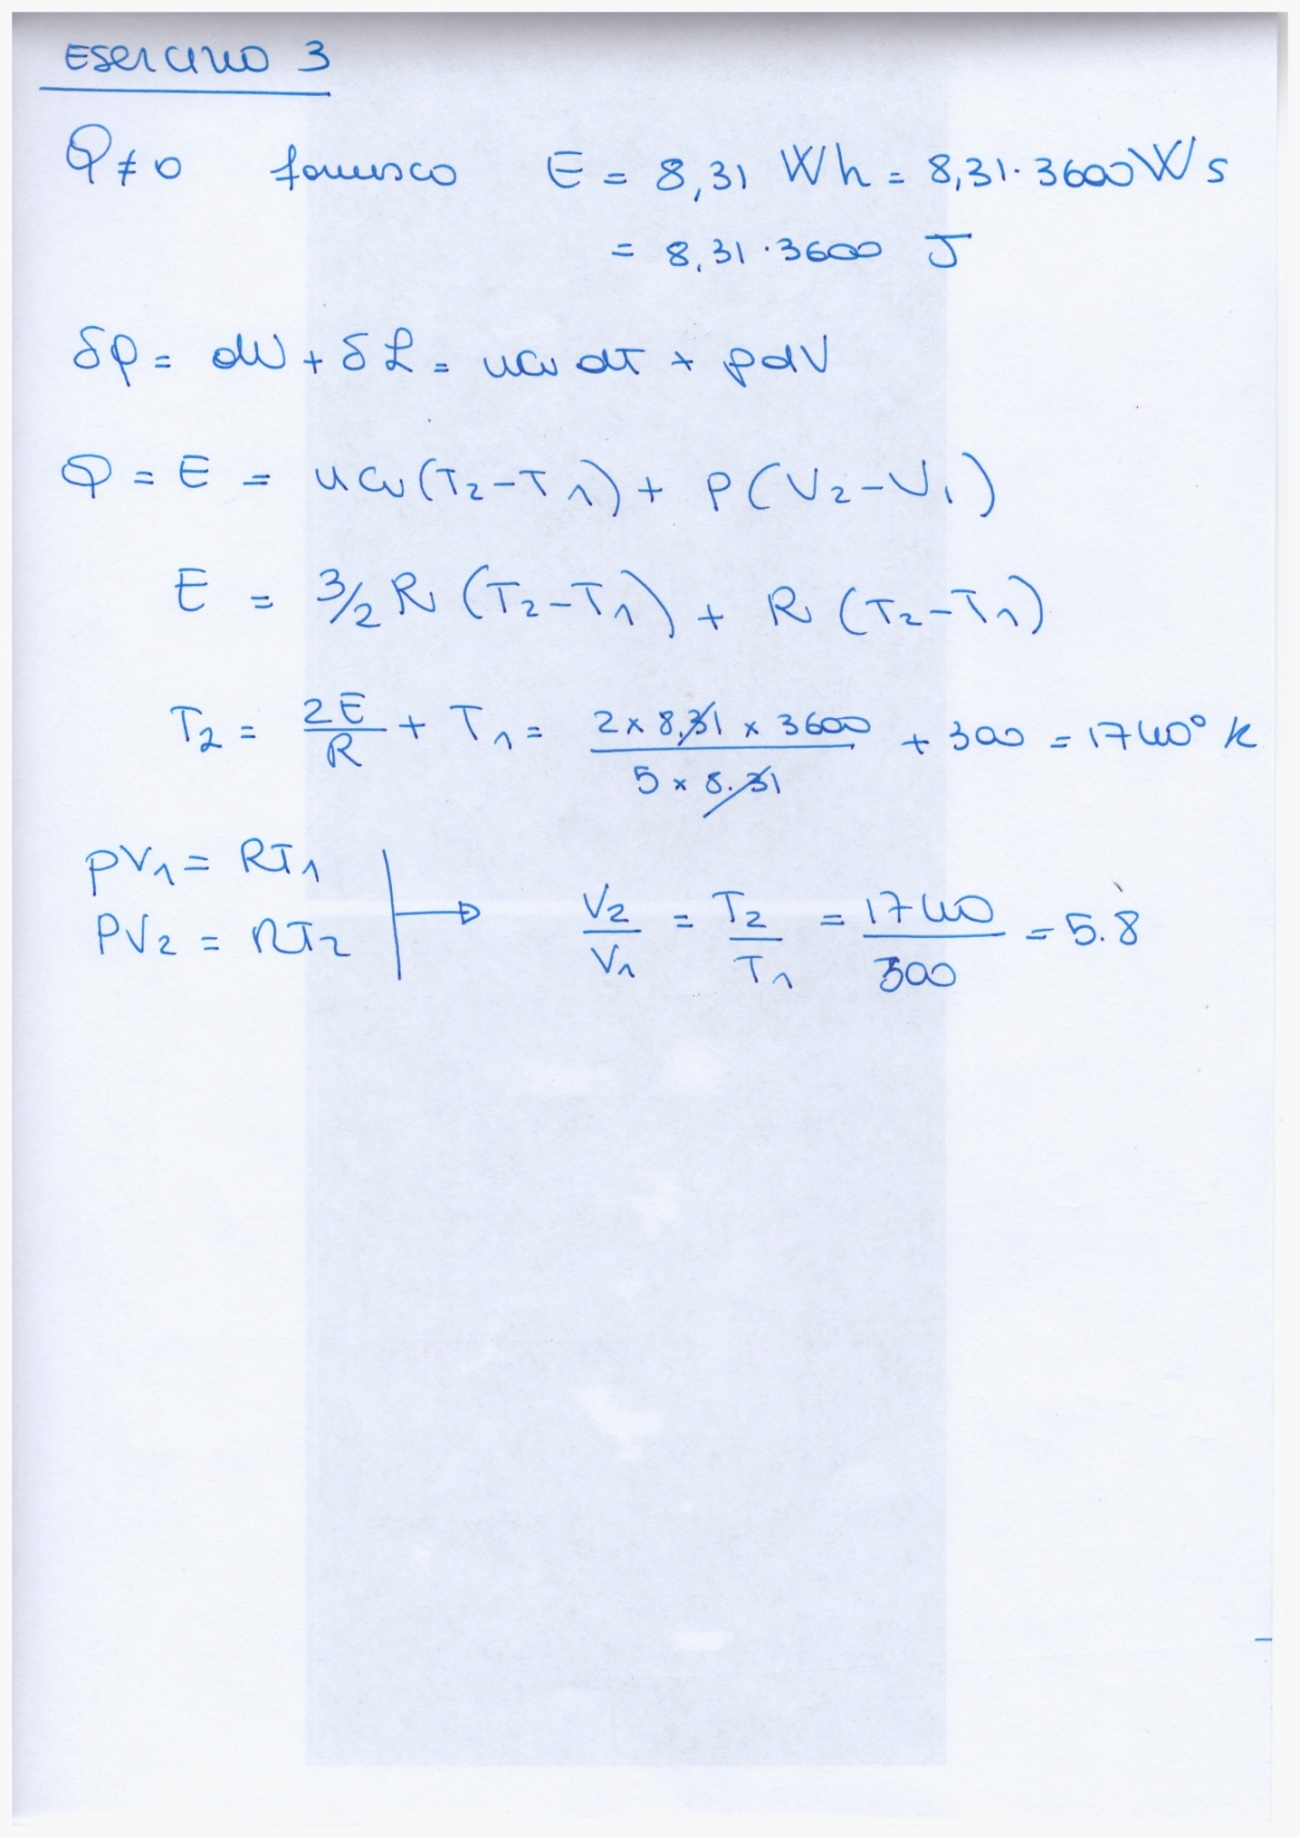 Esercizio 3
Q ≠ 0 fornisco E = 8,31 Wh = 8,31 · 3600 W s
= 8,31 · 3600 J
δQ = dU + δL = n cv dT + p dV
Q = E = n cv (T2 - T1) + P (V2 - V1)
E = 3/2 R (T2 - T1) + R (T2 - T1)
T2 = 2E/R + T1 = (2 x 8,31 x 3600)/(5 x 8.31) + 300 = 1740° K
pV1 = RT1
PV2 = RT2
V2/V1 = T2/T1 = 1740/300 = 5.8